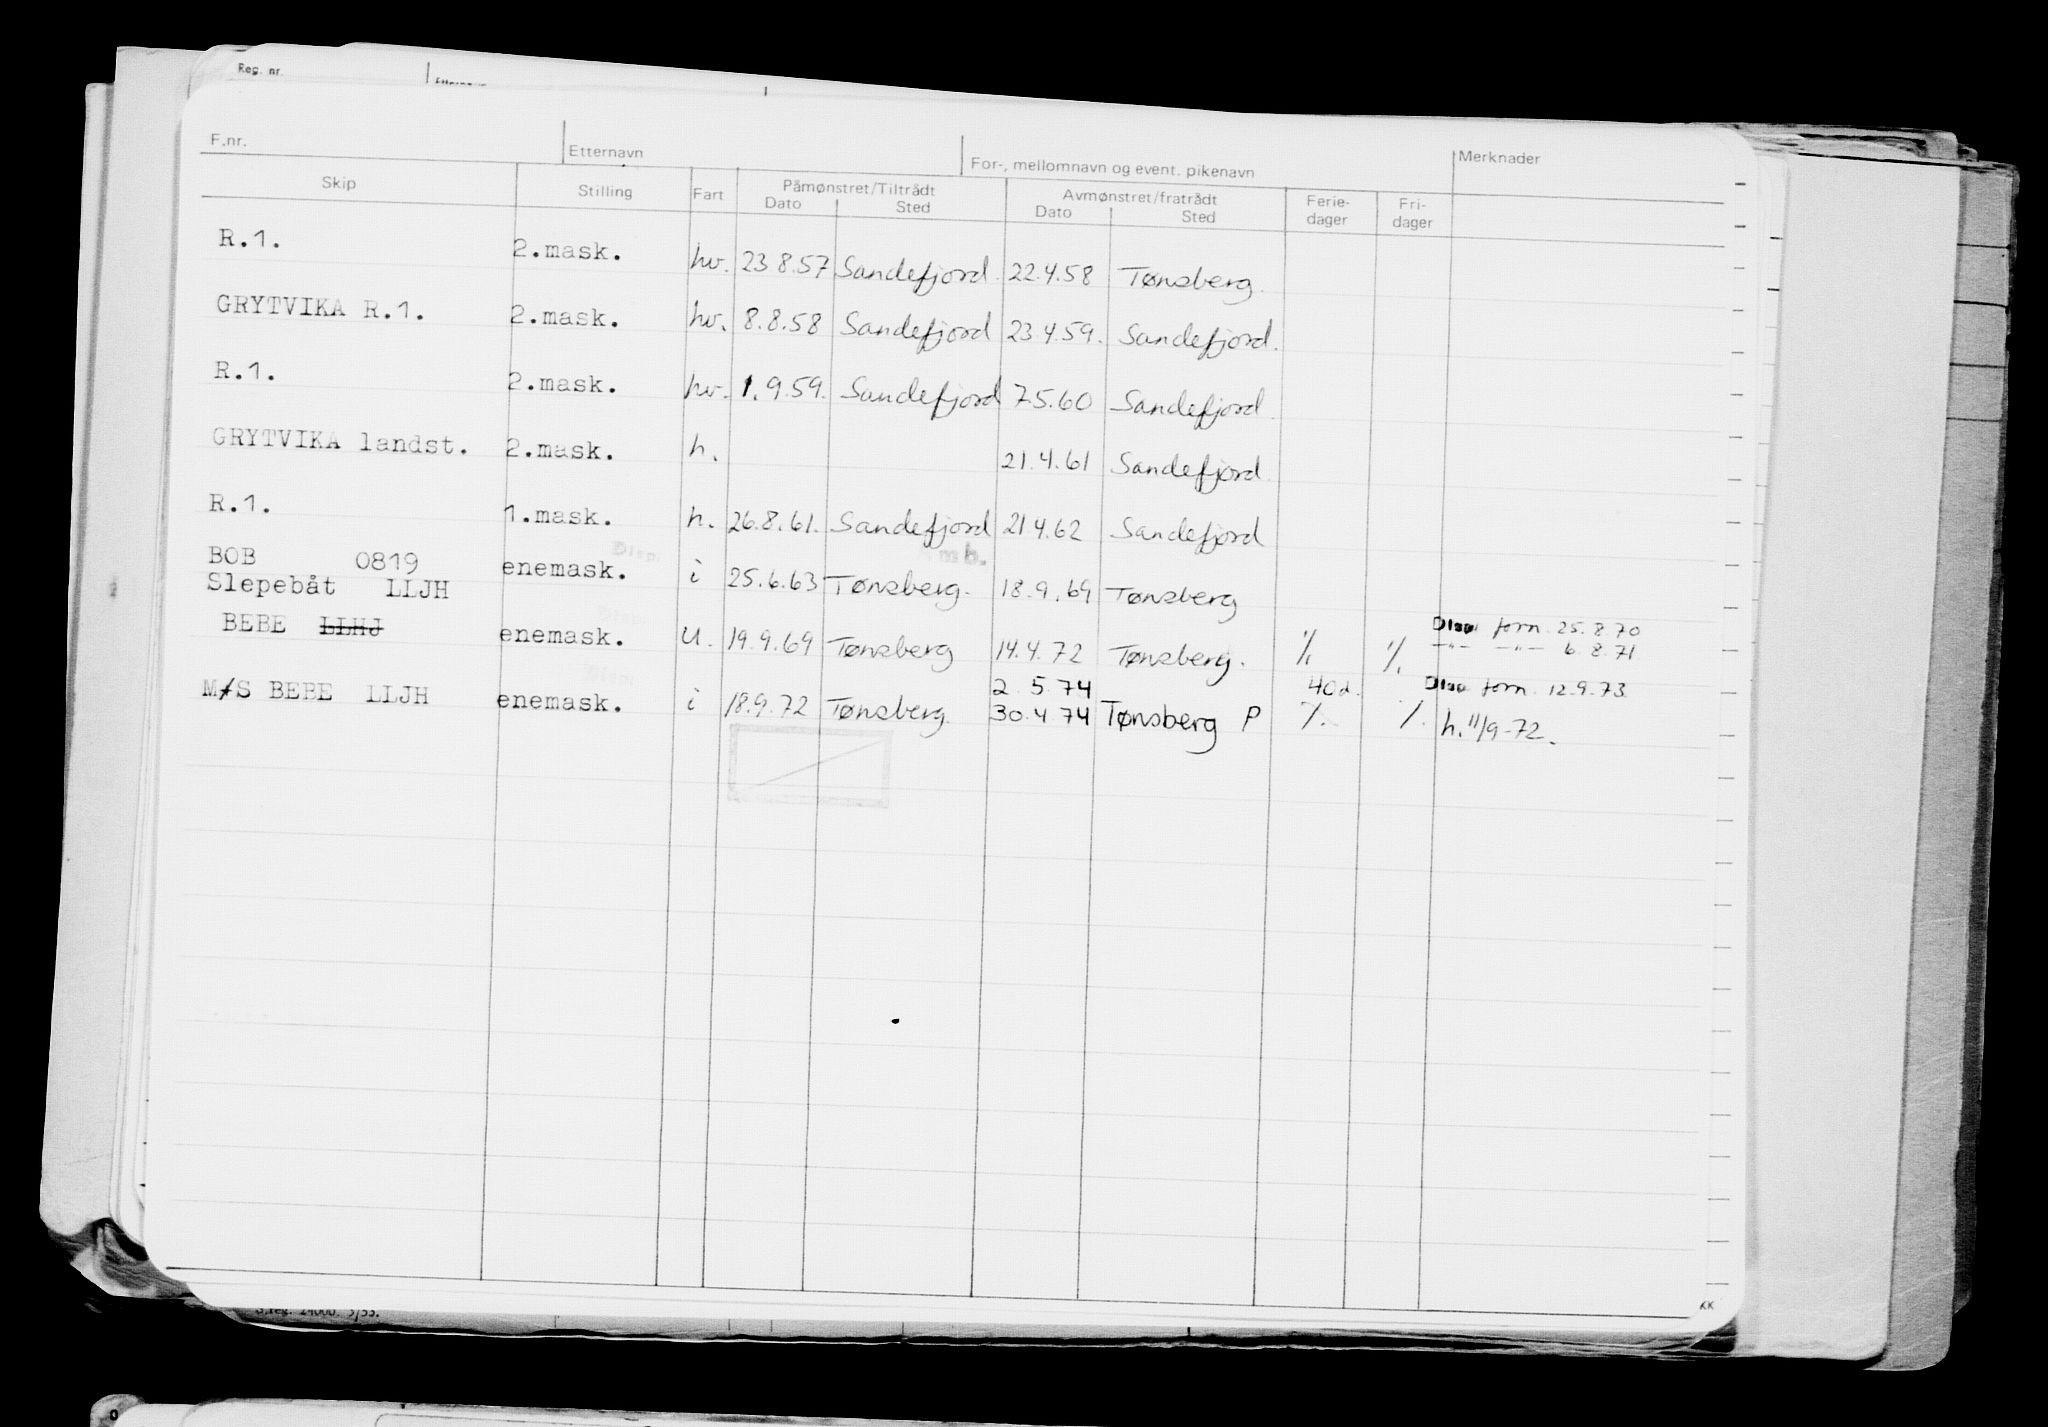 Reg. nr.
F.nr. Etternavn For-, mellomnavn og event. pikenavn Merknader
Skip Stilling Fart Påmønstret/Tiltrådt Avmønstret/fratrådt Ferie-dager Fri-dager
Dato Sted Dato Sted
R.1. 2.mask. hv. 23 8.57 Sandefjord. 22.4.58 Tønsberg.
GRYTVIKA R.1. 2.mask. hv. 8.8.58 Sandefjord 23.4.59. Sandefjord.
R.1. 2.mask. hv. 1.9.59. Sandefjord 7.5.60 Sandefjord.
GRYTVIKA landst. 2.mask. h. 21.4.61 Sandefjord.
R.1. 1.mask. h. 26.8.61. Sandefjord 21.4.62 Sandefjord
BOB 0819 enemask. i 25.6.63 Tønsberg. 18.9.69 Tønsberg
Slepebåt LLJH
BEBE LLHJ enemask. u. 19.9.69 Tønsberg 14.4.72 Tønsberg. ⁒ ⁒ Disp forn. 25.8.70
—"— —"— 6.8.71
2.5.74 40d. Disp forn. 12.9.73
M/S BEBE LLJH enemask. i 18.9.72 Tønsberg. 30.4.74 Tønsberg P ⁒ ⁒ h. 11/9-72.
S.reg. 24000. 5/55.
KK